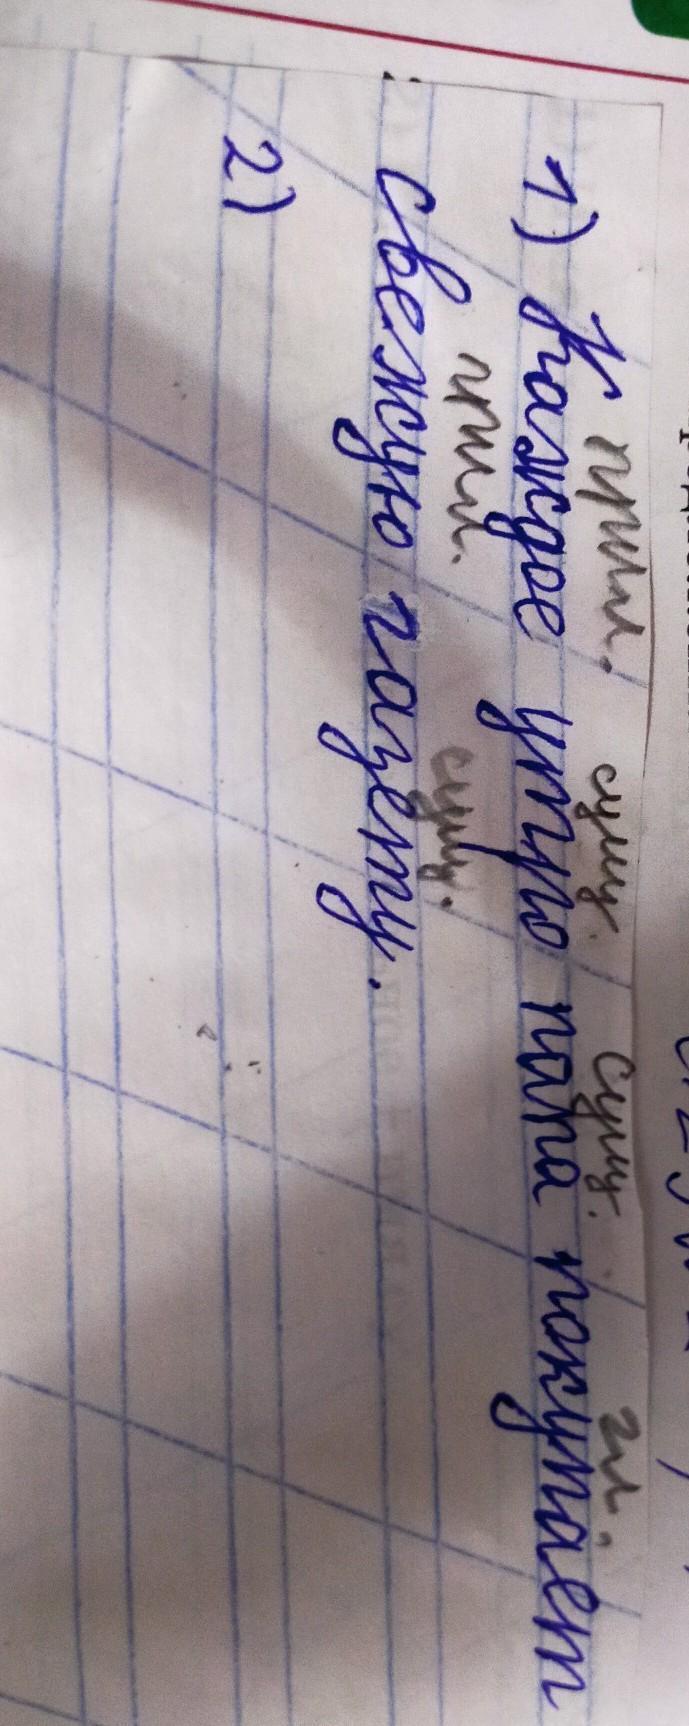 прил. сущ. сущ. гл.
1) Каждое утро папа покупает
прил. сущ.
свежую газету.
2)